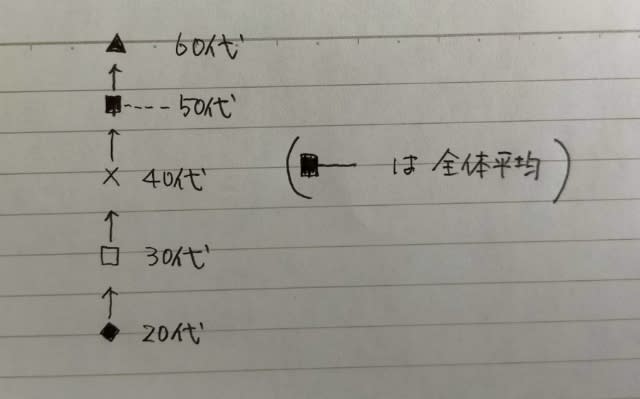 ▲ 60代
↑
■---- 50代
↑
× 40代
(■― は 全体平均)
↑
□ 30代
↑
◆ 20代